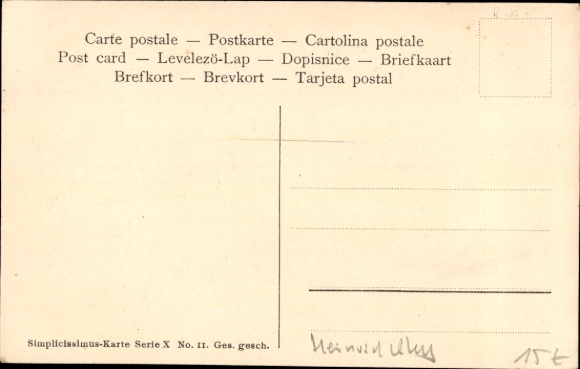 Carte postale — Postkarte — Cartolina postale
Post card — Levelező-Lap — Dopisnice — Briefkaart
Brefkort — Brevkort — Tarjeta postal
Simplicissimus-Karte Serie X No. 11. Ges. gesch.
Heinrich
15 €